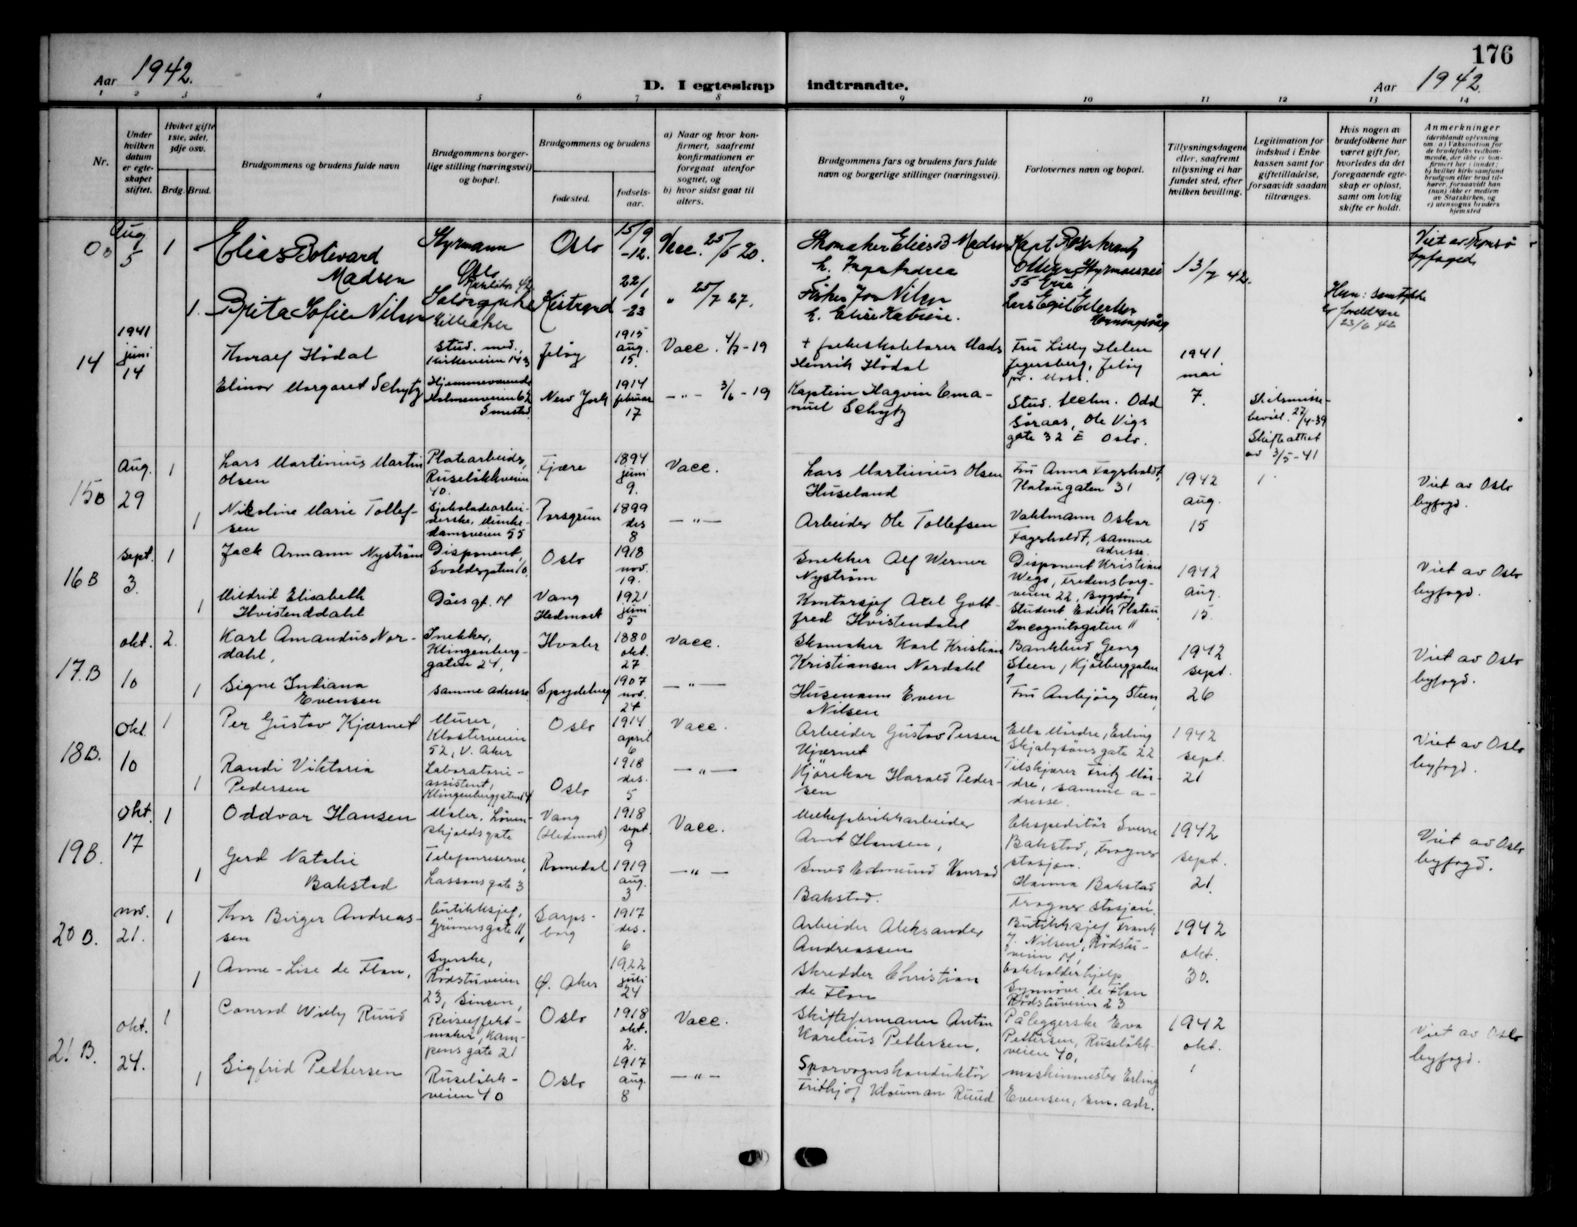 176
Aar 1942.
D. I egteskap indtraadte.
Aar 1942.
1 2 3 4 5 6 7 8 9 10 11 12 13 14
Nr.
Under hvilken datum er egteskapet stiftet.
Hvilket gifte 1ste, 2det, 3dje osv.
Brdg. Brud.
Brudgommens og brudens fulde navn
Brudgommens borgerlige stilling (næringsvei) og bopæl.
Brudgommens og brudens
fødested.
fødselsaar.
a) Naar og hvor konfirmert, saafremt konfirmationen er foregaat utenfor sognet, og
b) hvor sidst gaat til alters.
Brudgommens fars og brudens fars fulde navn og borgerlige stillinger (næringsvei).
Forlovernes navn og bopæl.
Tillysningsdagene eller, saafremt tillysning ei har fundet sted, efter hvilken bevilling.
Legitimation for indskud i Enkekassen samt for giftetilladelse, forsaavidt saadan trænges.
Hvis nogen av brudefolkene har været gift før, hvorledes da det foregaaende egteskap er opløst, samt om lovlig skifte er holdt.
Anmerkninger
Aug 5
1
Elias Botevard Madsen
Styrmann Oslo
Oslo
15/9 -12.
Vacc. 25/5 20.
Skomaker Elias B Madsen
13/7 42.
Viet av Tromsø byfoged
1.
Brita Sofie Nilsen
22/1 -23
" 25/7 27.
Fisker Nilsen
23/6 42
14
1941 juni 14
Hødal
stud. med., Kirkeveien 143
Jeløy
1915 aug. 15.
Vacc. 4/7-19
+ folkeskolelærer Mads Henrik Hødal
Fru Lilly Helen Jegersberg, Jeløy pr. Moss.
1941 mai 7.
Elinor Margaret Schytz
Hjemmeværende
New York
1914 februar 17
— " — 3/6-19
Kaptein Hagvin Emanuel Schytz
Stud. Odd Søraas, Ole Vigs gate 32 E Oslo.
Skilsmissebevill. 27/4-39
Skifteattest av 3/5-41
15B
Aug. 29
1
Lars Martinius Martin Olsen
Platearbeider, Ruseløkkveien 40.
Fjære
1894 juni 9.
Vacc.
Lars Martinius Olsen Huseland
Fru Anna Fagerholdt, Platougaten 31
1942 aug. 15
Viet av Oslo byfogd.
1
Nikoline Marie Tollefsen
Sjokoladearbeiderske, Munkedamsveien 55
Porsgrunn
1899 des 8
— " —
Arbeider Ole Tollefsen
Vaktmann Oskar Fagerholdt, samme adresse.
16B
sept. 3.
1
Jack Armann Nystrøm
Disponent, Svoldergaten 10.
Oslo
1918 nov. 19.
Snekker Alf Werner Nystrøm
Disponent Kristian Wegs, Fredensborgveien 22, Bygdøy
1942 aug. 15.
Viet av Oslo byfogd.
1
Mildrid Elisabeth Hvistenddahl
Daas gt. 14
Vang Hedmark
1921 juni 5
Kontorsjef Axel Gottfred Hvistendahl
Student Edith Platou, Incognitogaten 11
17.B
okt. 10
2.
Karl Amandus Nordahl,
Snekker, Klingenberggaten 24,
Hvaler
1880 okt. 27
Vacc.
Skomaker Karl Kristian Kristiansen Nordahl
Bankbud Georg Steen, Kjølberggaten
1942 sept. 26
Viet av Oslo byfogd.
1
Signe Indiana Evensen
samme adresse
Spydeberg
1907 nov. 24
— " —
Husmann Even Nilsen
Fru Asbjørg Steen,
18B.
Okt. 10
1
Per Gustav Kjærnet
Murer, Klosterveien 52, V. Aker
Oslo
1914 april 6
Vacc.
Arbeider Gustav Persen Kjærnet
Ella Mørdre, Erling Skjalgsønsgate 22
1942 sept. 21
Viet av Oslo byfogd.
1
Randi Viktoria Pedersen
Laboratorieassistent, Klingenberggaten 4
Oslo
1918 des. 5
— " —
Kjørekar Harald Pedersen
Tilskjærer Fritz Mørdre, samme adresse.
19B.
Okt. 17
1
Oddvar Hansen
Maler, Løvenskjoldsgate
Vang (Hedmark)
1918 sept. 9
Vacc.
Melkefabrikkarbeider Arnt Hansen,
Ekspeditør Sverre Bakstad, Frogner stasjon.
1942 sept. 21.
Viet av Oslo byfogd.
1
Gerd Natalie Bakstad
Telefonreserve, Lassonsgate 3
Romedal
1919 aug. 3
— " —
Smed Edmund Konrad Bakstad.
Hanna Bakstad Frogner stasjon.
20B.
nov. 21.
1
Thor Birger Andreassen
Butikksjef, Grünersgate 11,
Sarpsborg
1917 des. 6
Arbeider Aleksander Andreassen
Butikksjef Frank J. Nilsen, Rødstuveien 14,
1942 okt. 30.
1
Anne-Lise de Flon,
Syerske, Rødstuveien 23, Sinsen,
Ø. Aker
1922 juli 24
Skredder Christian de Flon
Bokholderhjelp Synnøve de Flon Rødstuveien 23
21B.
okt. 24.
1
Conrad Willy Ruud
Reiseeffektmaker, Kampens gate 21
Oslo
1918 okt. 2.
Vacc.
Skifteformann Anton Karelius Pettersen,
Påleggerske Eva Pettersen, Ruseløkkveien 40,
1942 okt. 1
Viet av Oslo byfogd.
1
Sigfrid Pettersen
Ruseløkkveien 40
Oslo
1917 aug. 8
— " —
Sporvognskonduktør Fridtjof Klouman Ruud
maskinmester Erling Evensen, sm. adr.